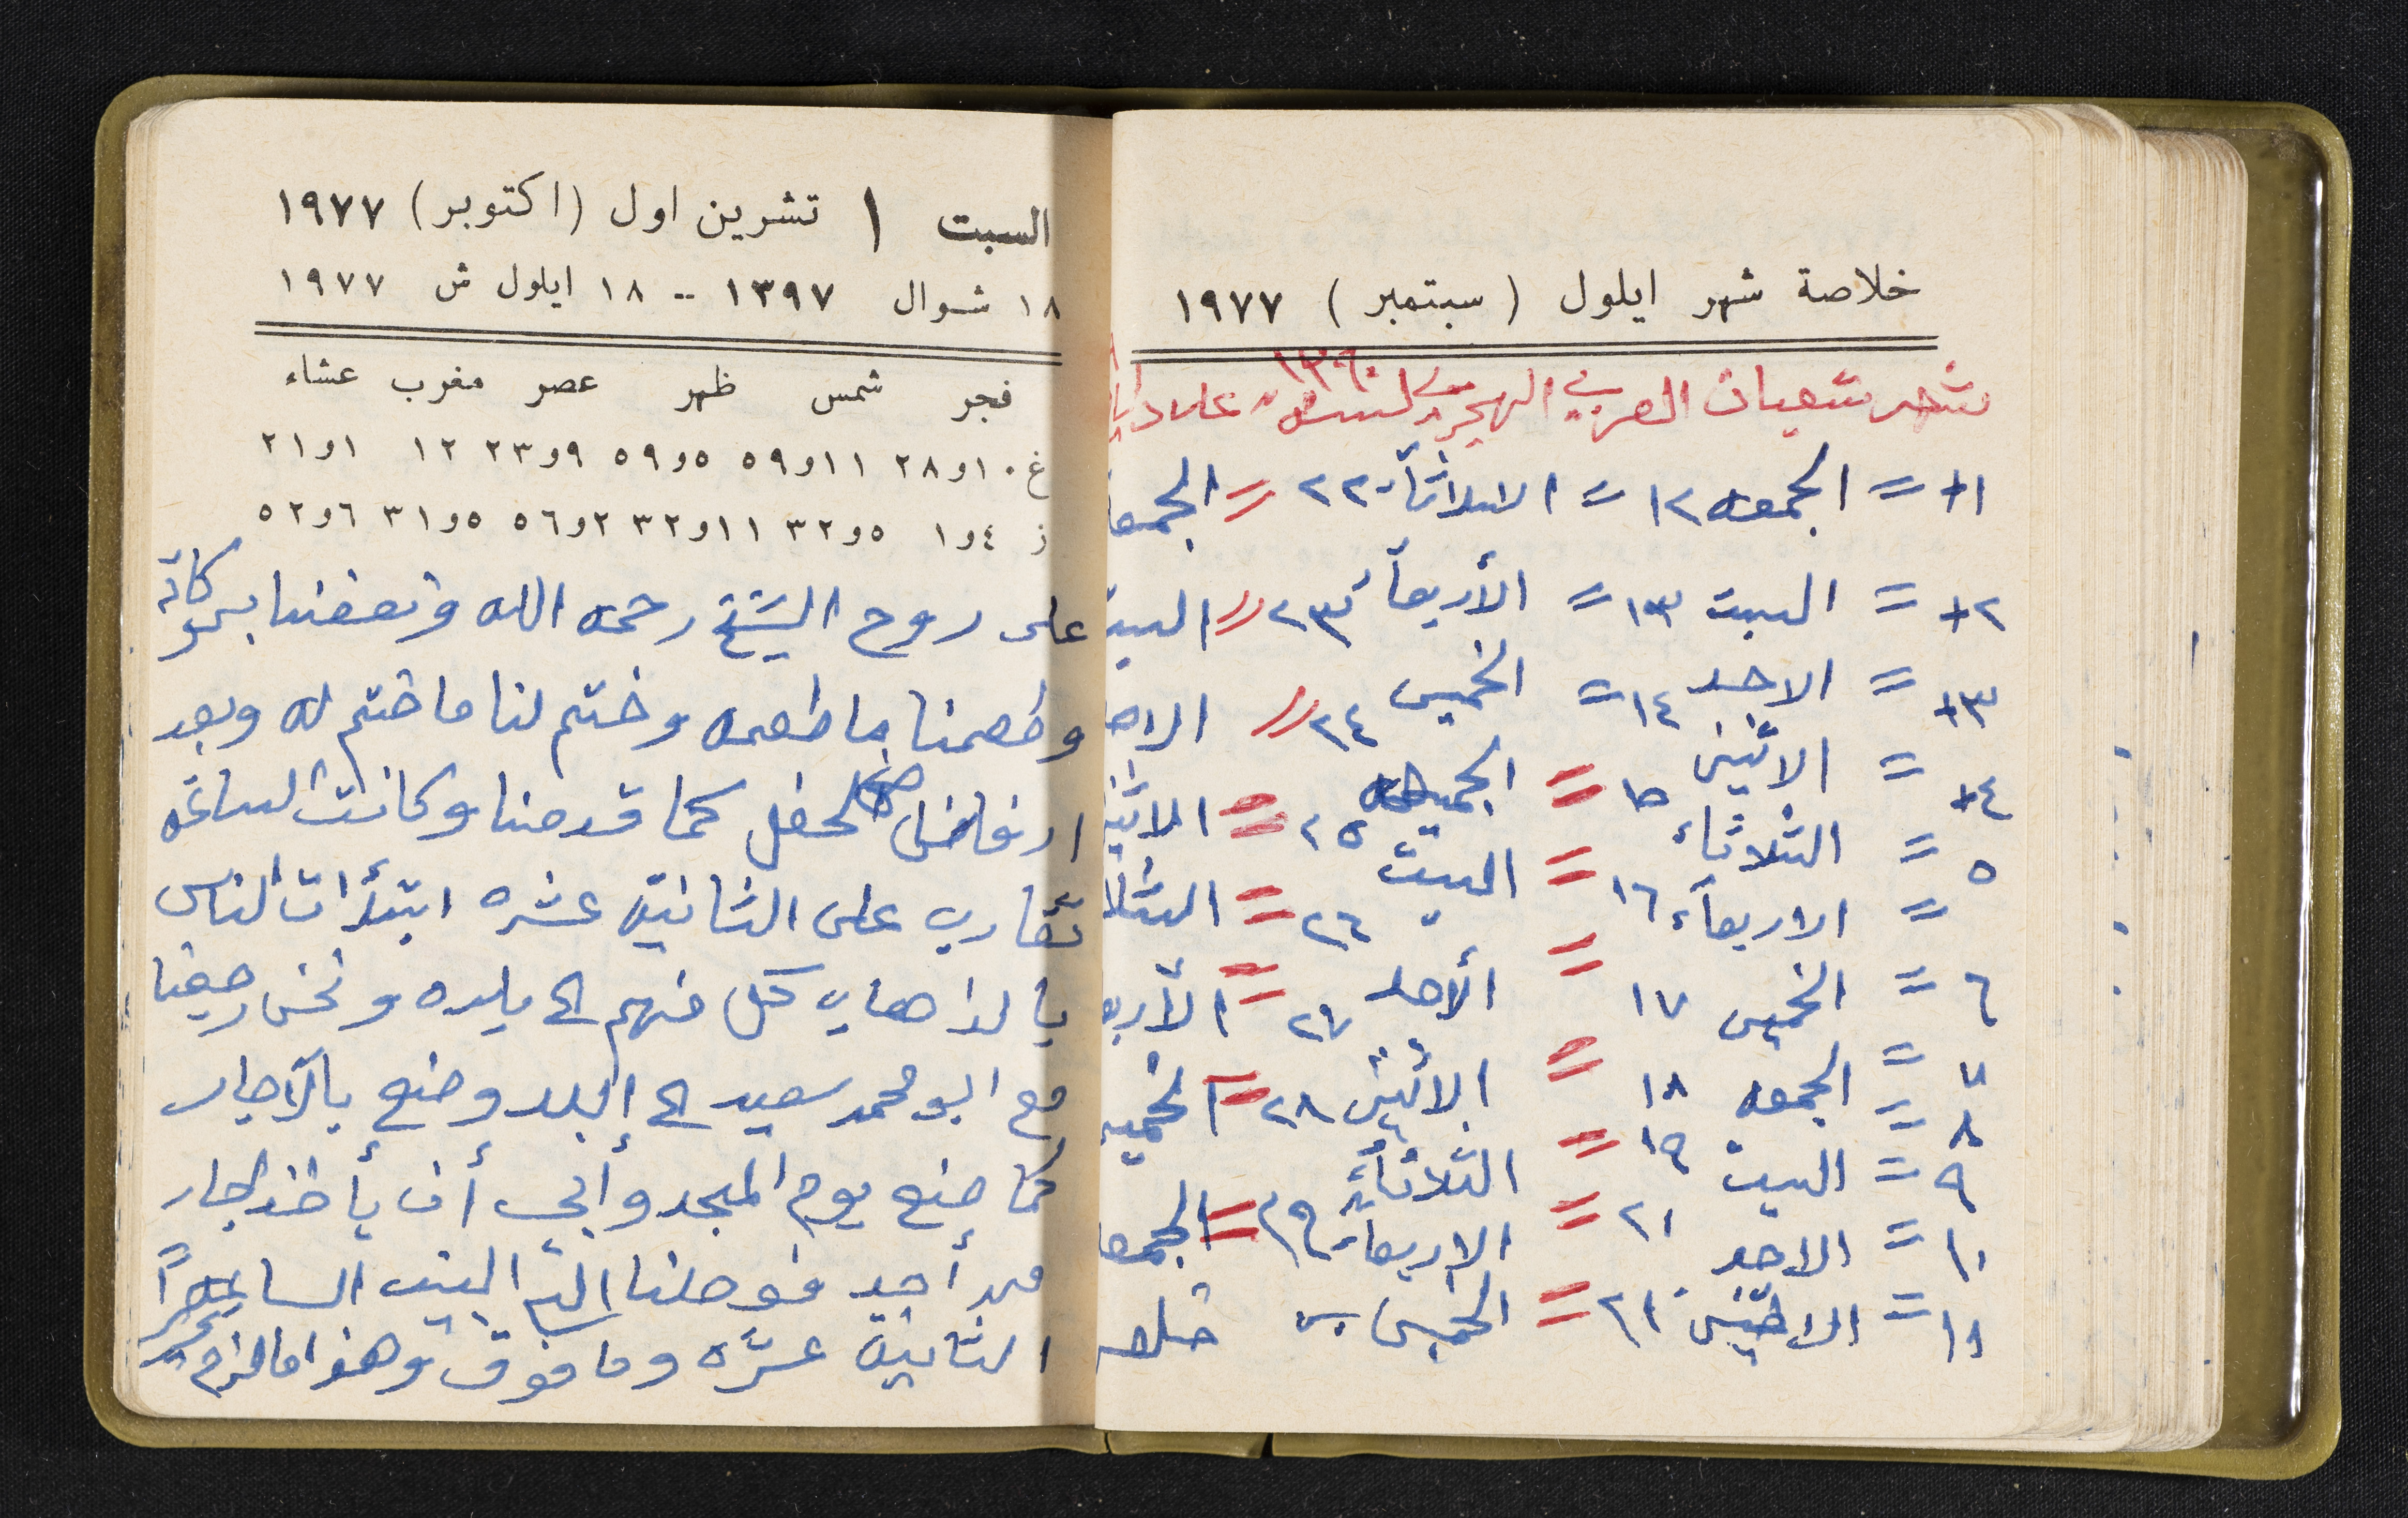 خلاصة شهر ايلول ( سبتمبر ) ١٩٧٧
شهر شعبان العربي الهجري لسنة
١+ = الجمعه ١٢ = الثلاثآء ٢٢ = الجمعه
٢+ = السبت ١٣ = الأربعآء ٢٣ = السبت
٣+ = الاحد ١٤ = الخميس ٢٤ = الاحد
٤+ = الاثنين ١٥ = الجمعه ٢٥ = الاثنين
٥ = الثلاثاء ١٦ = السبت ٢٦ = الثلا
= الاربعآء ١٧ = الأحد ٢٧ = الأربع
٦ = الخميس ١٨ = الاثنين ٢٨ = الخميس
٧ = الجمعه ١٩ = الثلاثآء ٢٩ = الجمعه
٨ =
٩ = السبت ٢٠ = الاربعآء
١٠ = الاحد ٢١ = الخميس
١١ = الاثنين
السبت ١ تشرين اول (اكتوبر) ١٩٧٧
١٨ شوال ١٣٩٧ -- ١٨ ايلول ش ١٩٧٧
فجر شمس ظهر عصر مغرب عشاء
غ ١٠و٢٨ ١١و٥٩ ٥و٥٩ ٩و٢٣ ١٢ ١و٢١
ز ٤و١ ٥و٣٢ ١١و٣٢ ٢و٥٦ ٥و٣١ ٦و٥٢
على روح الشيخ رحمه الله ونفعنا ببركاته
وطعمنا ما طعمه وختم لنا ما ختم له وبعد
ارفضاض الحفل كما قدمنا وكانت الساعه
تقارب على الثانية عشره ابتدأت الناس
بالذهاب كل منهم الى بلده ونحن رجعنا
مع ابو محمد سعيد الى البلد وصنع بالآجار
كما صنع يوم المجد وأبى أن يأخذ اجار
من أحد فوصلنا الى البيت الساعه
الثانية عشره وما فوق وهذا ما لزم تحريراً